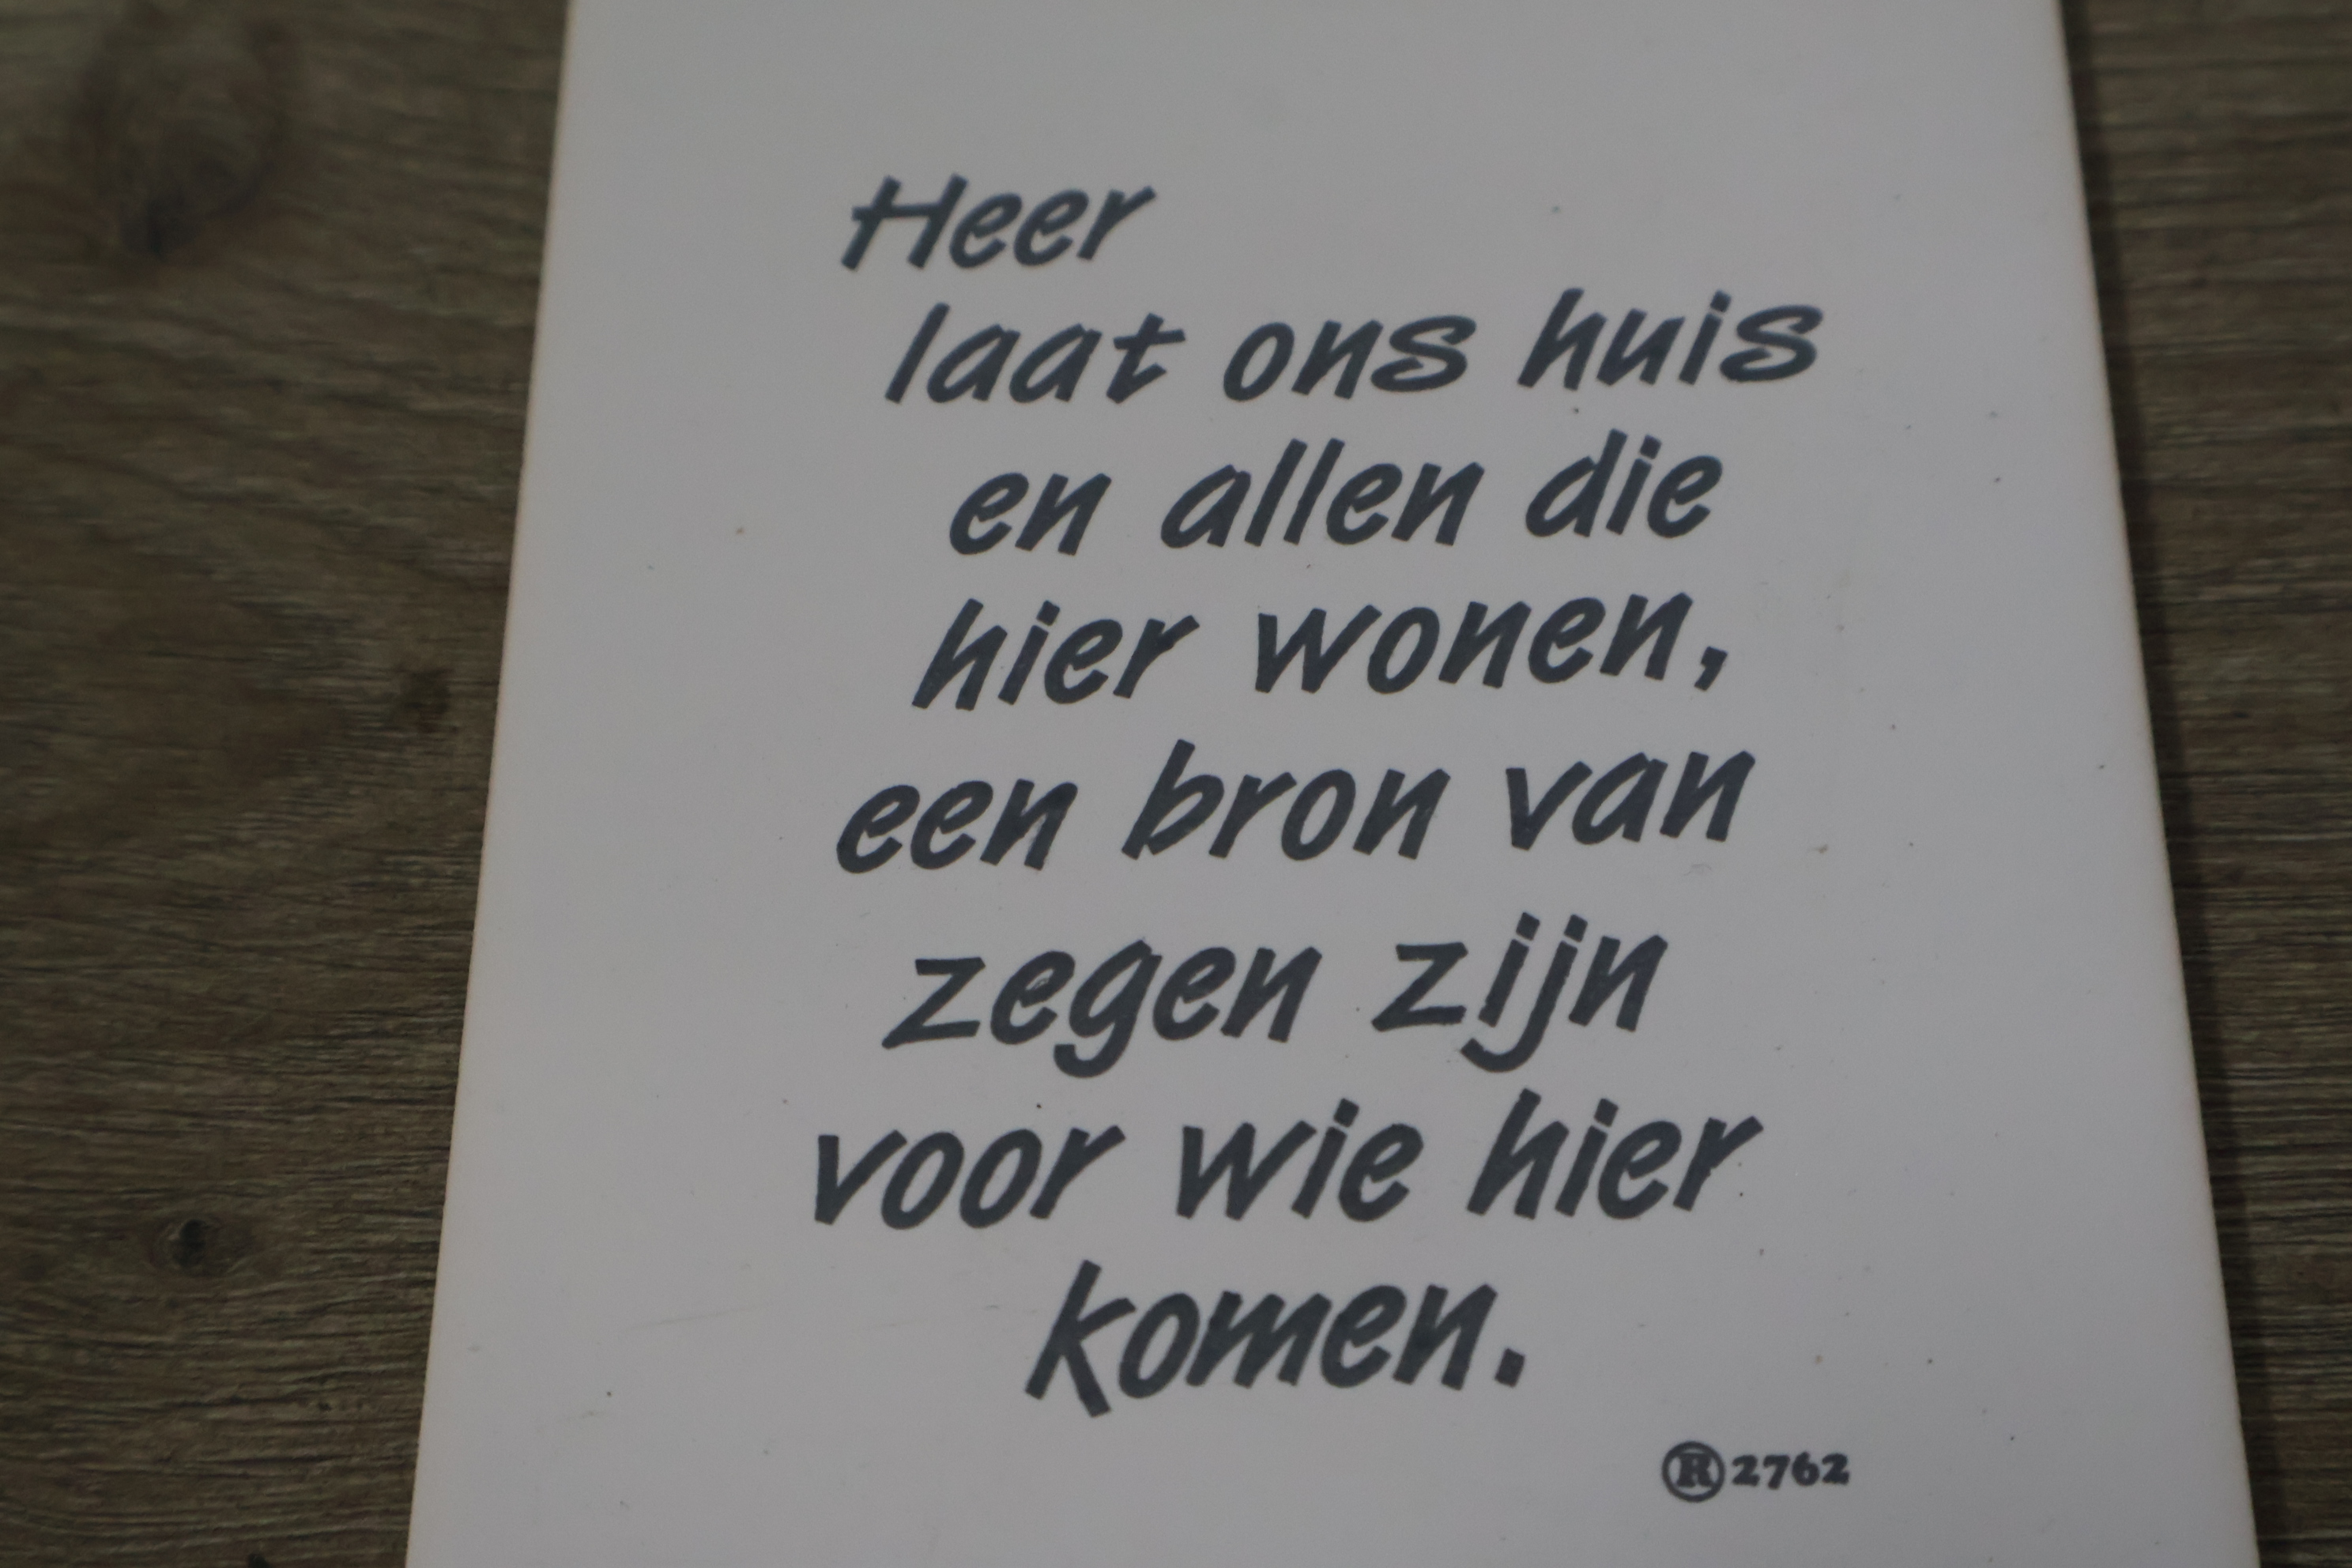 Heer
laat ons huis
en allen die
hier wonen,
een bron van
zegen zijn
voor wie hier
komen.
®2762